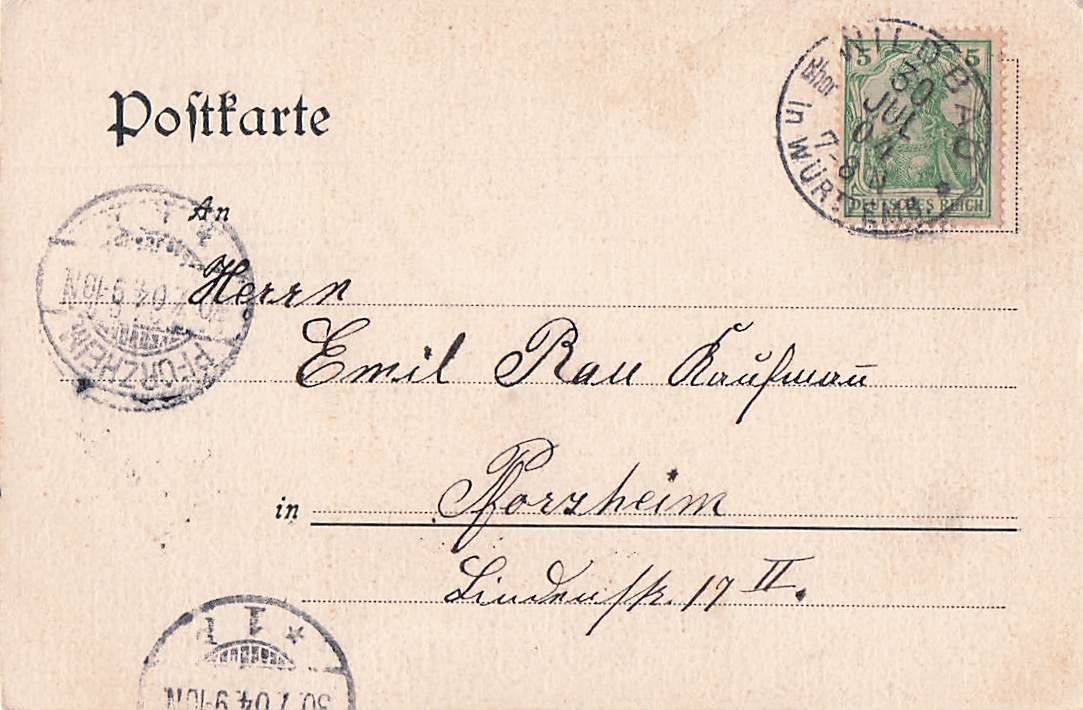 Postkarte
5 5
WILDBAD
30
JUL
04
7-8 N
in WÜRTEMB.
DEUTSCHES REICH
An
Herrn
Emil Rau Kaufmañ
in Pforzheim
Lindenstr. 17 II.
PFORZHEIM
30.7.04.9-10N
1
30.7.04.9-10N